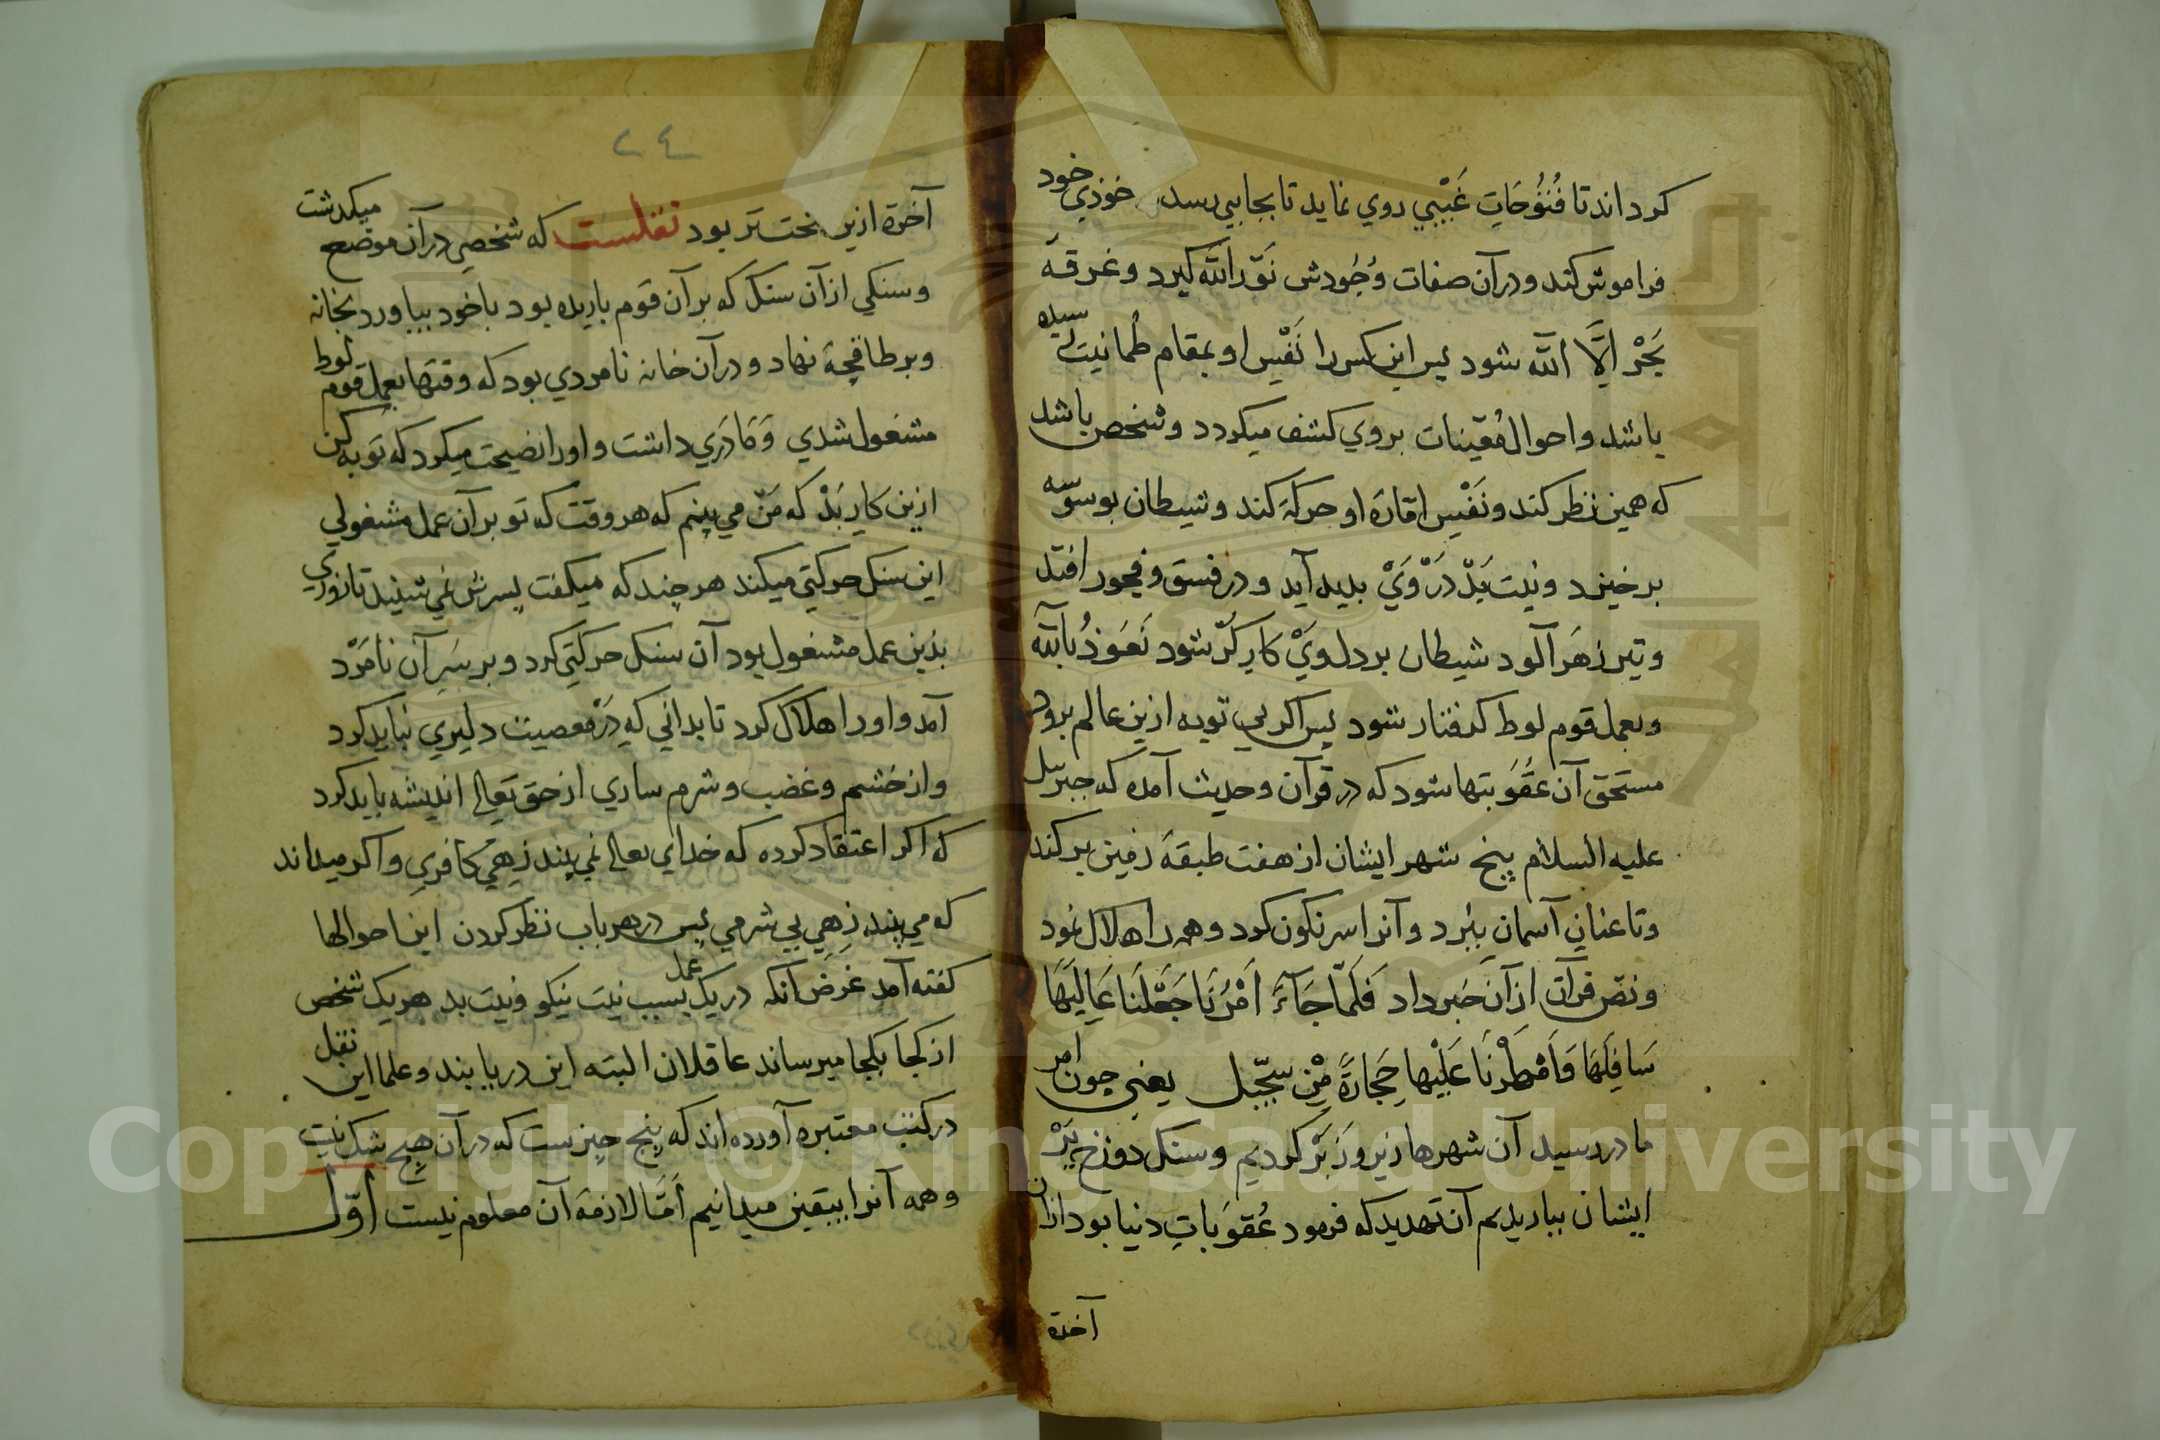 كرد اند تا فُتُوحَاتِ غَيْبِي روي نمايد تا بجايي رسد خوديِ خود
فراموش كند و در آن صفات وُجُودش نَوَّرَ اللّه كيرد و غرقهَ
بَحْرِ اِلَّا اللّه شود پس اين كس را نَفْسِ او بمقام طُمانيت رسيده
باشد و احوال مُغيّبات بروي كشف ميكردد و شخص باشد
كه همين نظر كند و نَفْسِ امّارَه او حركَة كند و شيطان بوسوسه
برخيزد و نيت بَدْ دَرْ وَيْ بديد آيد و در فسق و فجور افتد
و تير زهَر آلود شيطان بر دل وَيْ كاركَر شود نَعَوذُ بِاللّه
و بعمل قوم لوط كرفتار شود پس اكر بي توبه ازين عالم برود
مستحق آن عقوَبتها شود كه در قرآن و حديث آمده كه جبرييل
عليه السلام پنج شهر ايشان از هفت طبقهَ زمين بركند
و تا عنانِ آسمان ببُرد و آنرا سرنكون كرد و همه را هلاك نمود
و نصّ قرآن ازآن خَبر داد فَلَمّا جَآءَ اَمْرُنَا جَعَلْنَا عَالِيَهَا
سَافِلَهَا وَاَمْطَرْنَا عَلَيْهَا حِجَارَةً مِّنْ سِجِّيل يعني چون امر
ما در رسيد آن شهرها زير و زَبَرْ كرديم و سنك دوزخ بَرْ
ايشان بباريديم آن تهديد كه فرمود عُقوَباتِ دنيا بود ازان
آخرة
٢٤
آخرة ازين سخت تَر بود نقلست كه شخصي در آن موضع ميكدشت
و سنكي از آن سنك كه بر آن قوم باريده بود با خود بياورد بخانه
و بر طاقچهَ نهاد و در آن خانه نامردي بود كه وقتها بعمل قوم لوط
مشغول شدي وَ مَادَرِي داشت و اورا نصيحت ميكرد كه توَبه كن
ازين كارِ بَدْ كه مَنْ مي بينم كه هر وقت كه تو بر آن عمل مشغولي
اين سنك حركتي ميكند هر چند كه ميكفت پسرش نمي شنيد تا روزي
بذين عمل مشغول بود آن سنك حركَتِي كرد و بر سَرِ آن نامَرْد
آمد و اورا هلاك كرد تا بداني كِه دَرْ معصيت دليري نبايد كرد
و از خشم و غضب و شرم ساري از حق تَعَالي انديشه بايد كرد
كه اكر اعتقاد كرده كه خداي تعالي نمي بيند زِهِي كافري و اكر ميداند
كه مي بيند زِهِي بي شرمي پس در هر باب نظر كردن اين احوالها
كفته آمد غَرَض آنكه در يك عمل بسبب نيت نيكو و نيت بد هر يك شخص
از كجا بكجا ميرساند عاقلان البته اين دريابند و علما اين نقل
در كتب معتبره آورده اند كه پنج چيزست كه در آن هيچ شك نيست
و همه آنرا بيقين ميدانيم اَمَّا لازمهَ آن معلوم نيست اوّل
Copyright © King Saud University